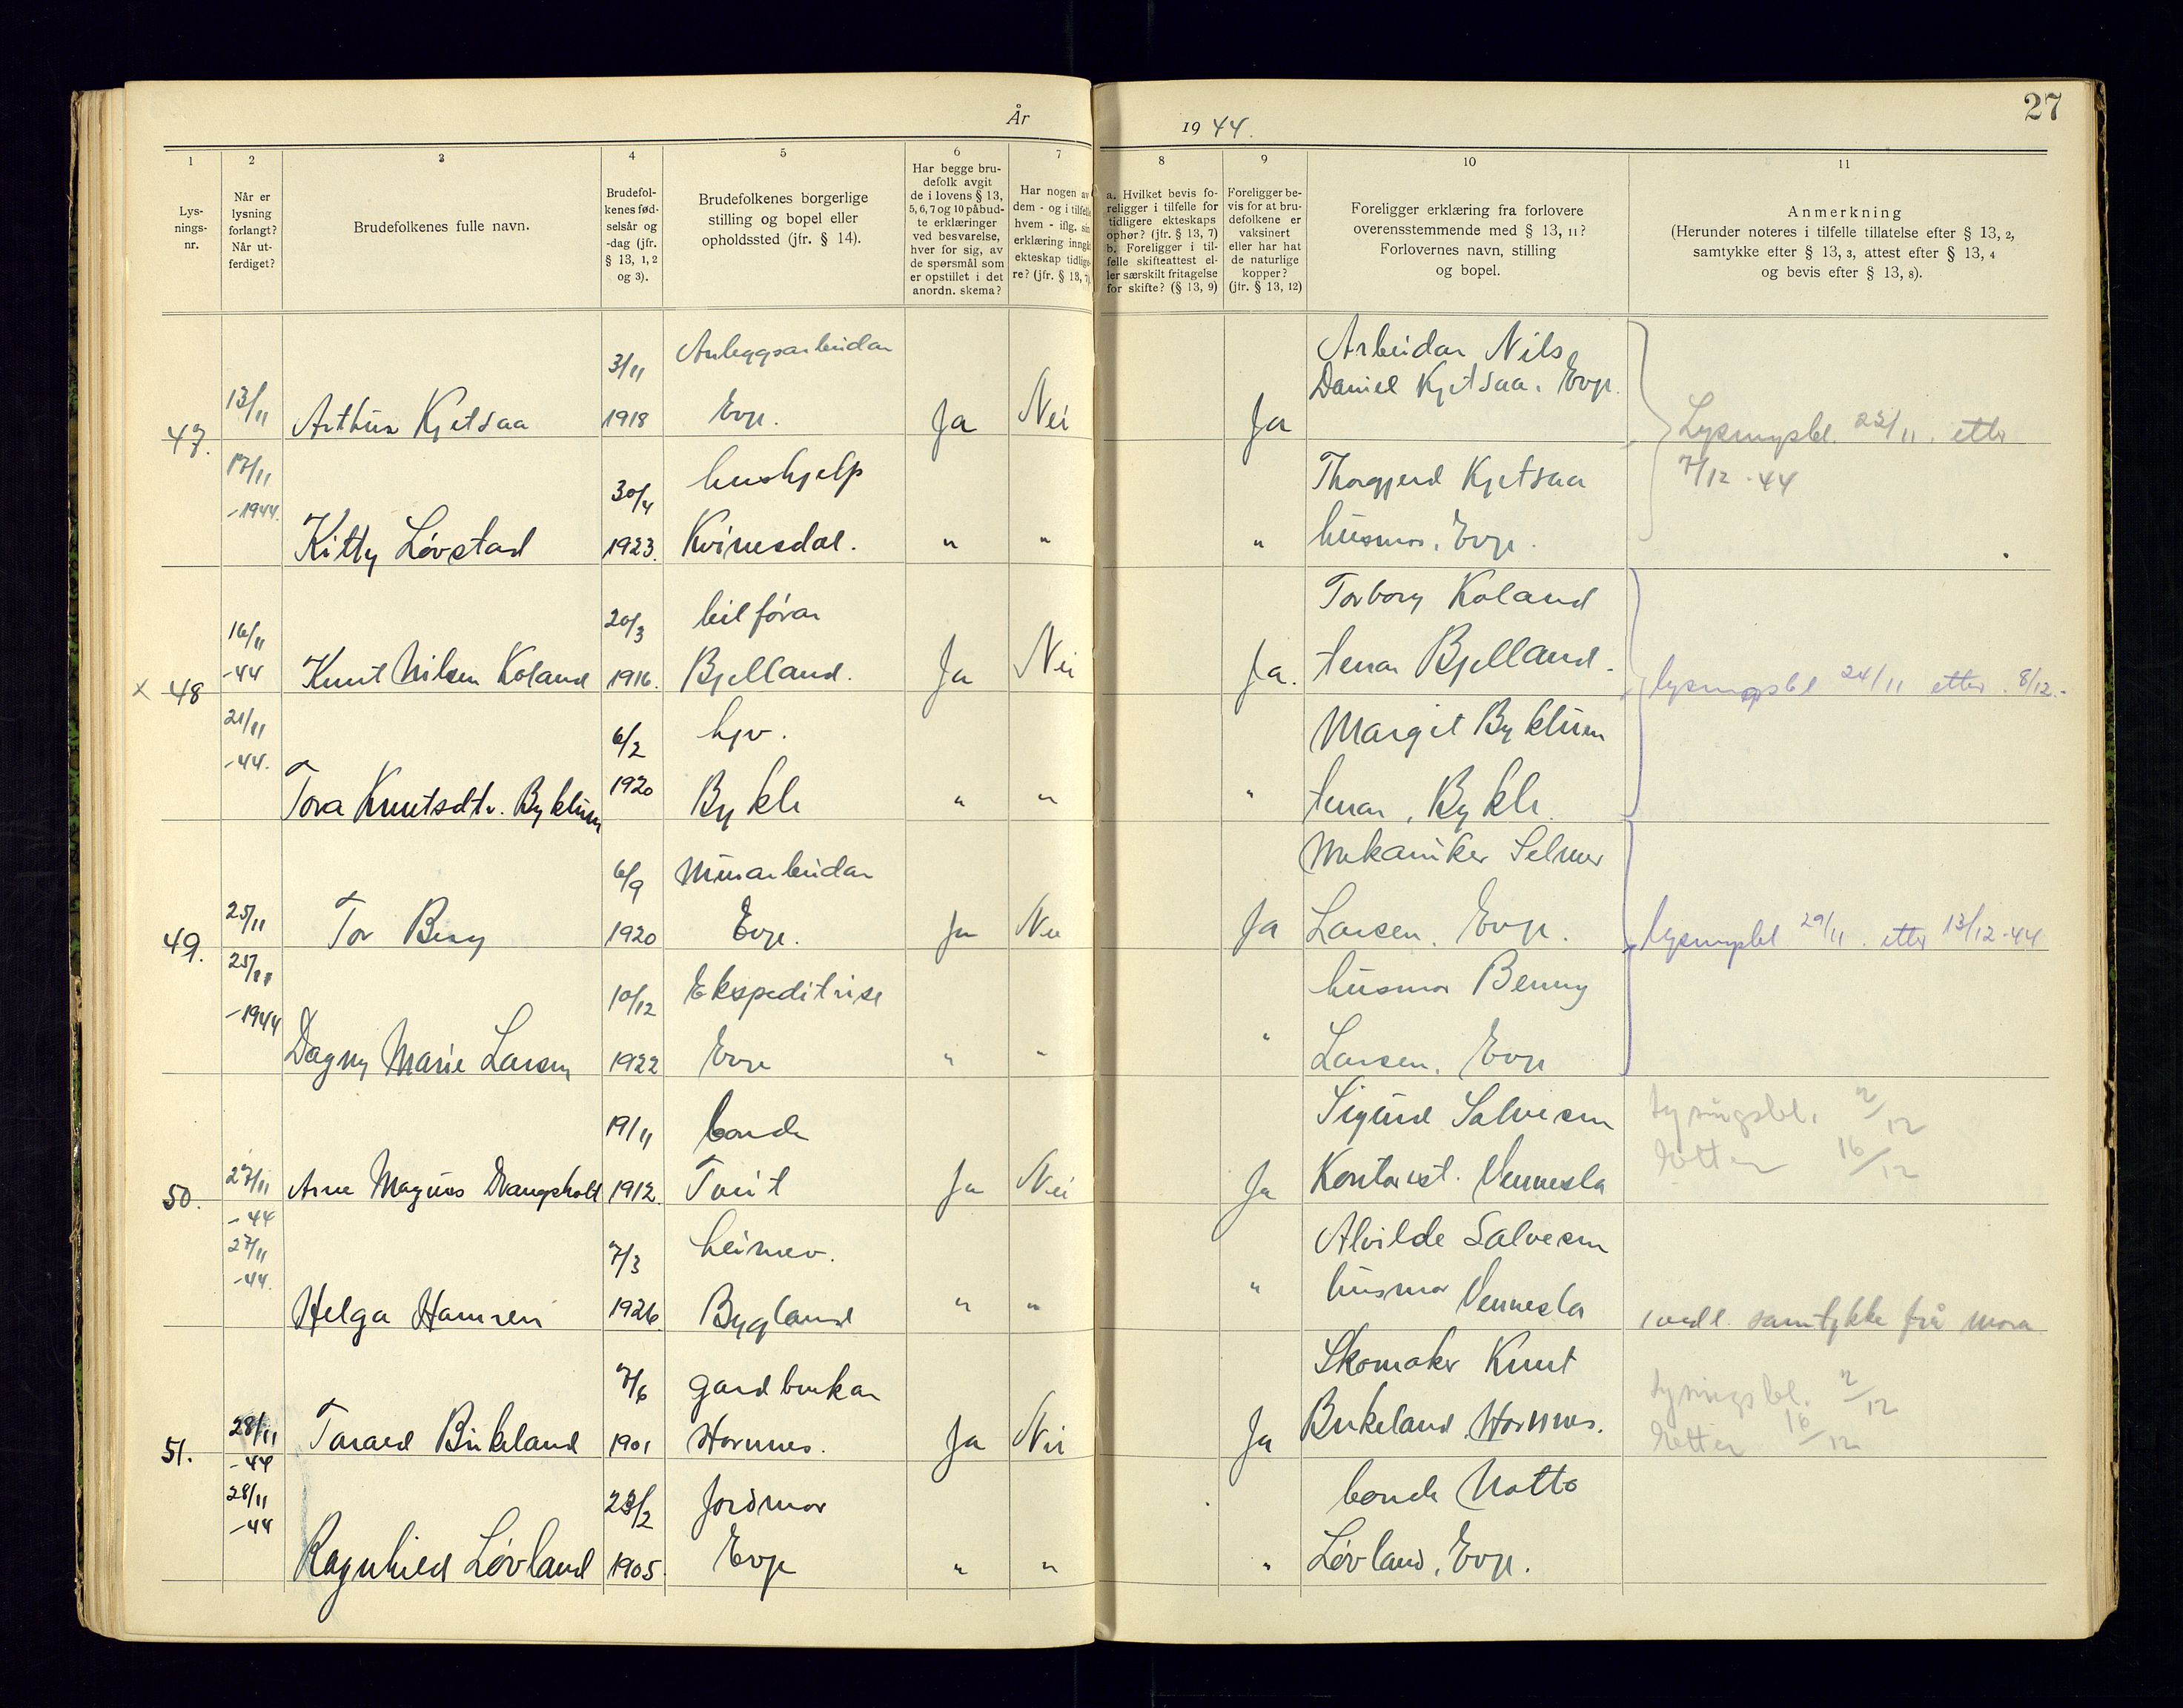 År
1944.
27
1
2
3
4
5
6
7
8
9
10
11
Lys-
nings-
nr.
Når er
lysning
forlangt?
Når ut-
ferdiget?
Brudefolkenes fulle navn.
Brudefol-
kenes fød-
selsår og
-dag (jfr.
§ 13, 1, 2
og 3).
Brudefolkenes borgerlige
stilling og bopel eller
opholdssted (jfr. § 14).
Har begge bru-
defolk avgit
de i lovens § 13,
5, 6, 7 og 10 påbud-
te erklæringer
ved besvarelse,
hver for sig, av
de spørsmål som
er opstillet i det
anordn. skema?
Har nogen av
dem - og i tilfelle
hvem - iflg. sin
erklæring inngå
ekteskap tidlige-
re? (jfr. § 13, 7)
a. Hvilket bevis fo-
religger i tilfelle for
tidligere ekteskaps
ophør? (jfr. § 13, 7)
b. Foreligger i til-
felle skifteattest el-
ler særskilt fritagelse
for skifte? (§ 13, 9)
Foreligger be-
vis for at bru-
defolkene er
vaksinert
eller har hat
de naturlige
kopper?
(jfr. § 13, 12)
Foreligger erklæring fra forlovere
overensstemmende med § 13, 11?
Forlovernes navn, stilling
og bopel.
Anmerkning
(Herunder noteres i tilfelle tillatelse efter § 13, 2,
samtykke efter § 13, 3, attest efter § 13, 4
og bevis efter § 13, 8).
47.
13/11
17/11
-1944.
Arthur Kjetsaa
3/11
1918
Anleggsarbeidar
Evje.
Ja
Nei
Ja
Arbeidar Nils
Daniel Kjetsaa, Evje.
Lysingsbl. 22/11. etter
7/12 -44
Kitty Løvstad
30/4
1923.
hushjelp
Kvinesdal.
"
"
"
Thorgjerd Kjetsaa
husmor, Evje.
x 48
16/11
-44
21/11
-44.
Knut Nilsen Koland
20/3
1916.
bilførar
Bjelland.
Ja
Nei
Ja.
Torborg Koland
tenar Bjelland.
lysingsbl 24/11 etter 8/12.-
Tora Knutsdtr. Byklum
6/2
1920
hjv.
Bykle
"
"
"
Margit Byklum
tenar, Bykle.
49.
25/11
25/11
-1944
Tor Berg
6/9
1920
Minarbeidar
Evje.
Ja
Nei
Ja
Mekaniker Selmer
Larsen, Evje.
lysingsbl 29/11. etter 13/12-44
Dagny Marie Larsen
10/12
1922
Ekspeditrise
Evje
"
"
"
husmor Benny
Larsen, Evje
50.
27/11
-44
27/11
-44.
Arne Magnus Drangsholt
19/11
1912.
bonde
Tveit
Ja
Nei
Ja
Sigurd Salvesen
Kontorist. Vennesla
Lysingsbl. 2/12
16/12
Helga Hansen
7/3
1926.
heimev.
Bygland
"
"
"
Alvilde Salvesen
husmor Vennesla
1 vedl. samtykke frå mora
51.
28/11
-44
28/11
-44
Tarald Birkeland
7/6
1901
gardbrukar
Hornnes.
Ja
Nei
Ja
Skomaker Knut
Birkeland, Hornnes.
Lysingsbl. 2/12
16/12
Ragnhild Løvland
23/2
1905.
Jordmor
Evje
"
"
"
bonde Notto
Løvland, Evje.